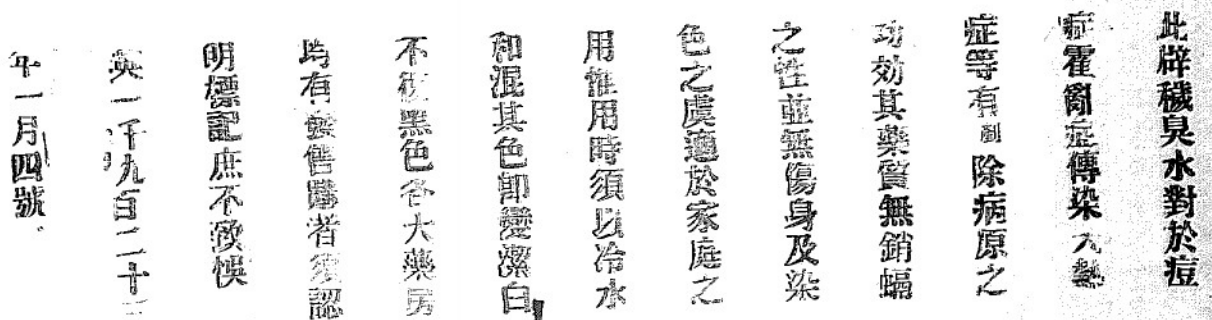 此辟穢臭水對於痘
症霍亂症傳染大熱
症等有剷除病原之
功效其藥質無銷蝕
之性並無傷身及染
色之虞適於家庭之
用惟用時須以冷水
和混其色即變潔白
不復黑色各大藥房
均有發售購者須認
明標記庶不致悞
英一千九百二十
年一月四號